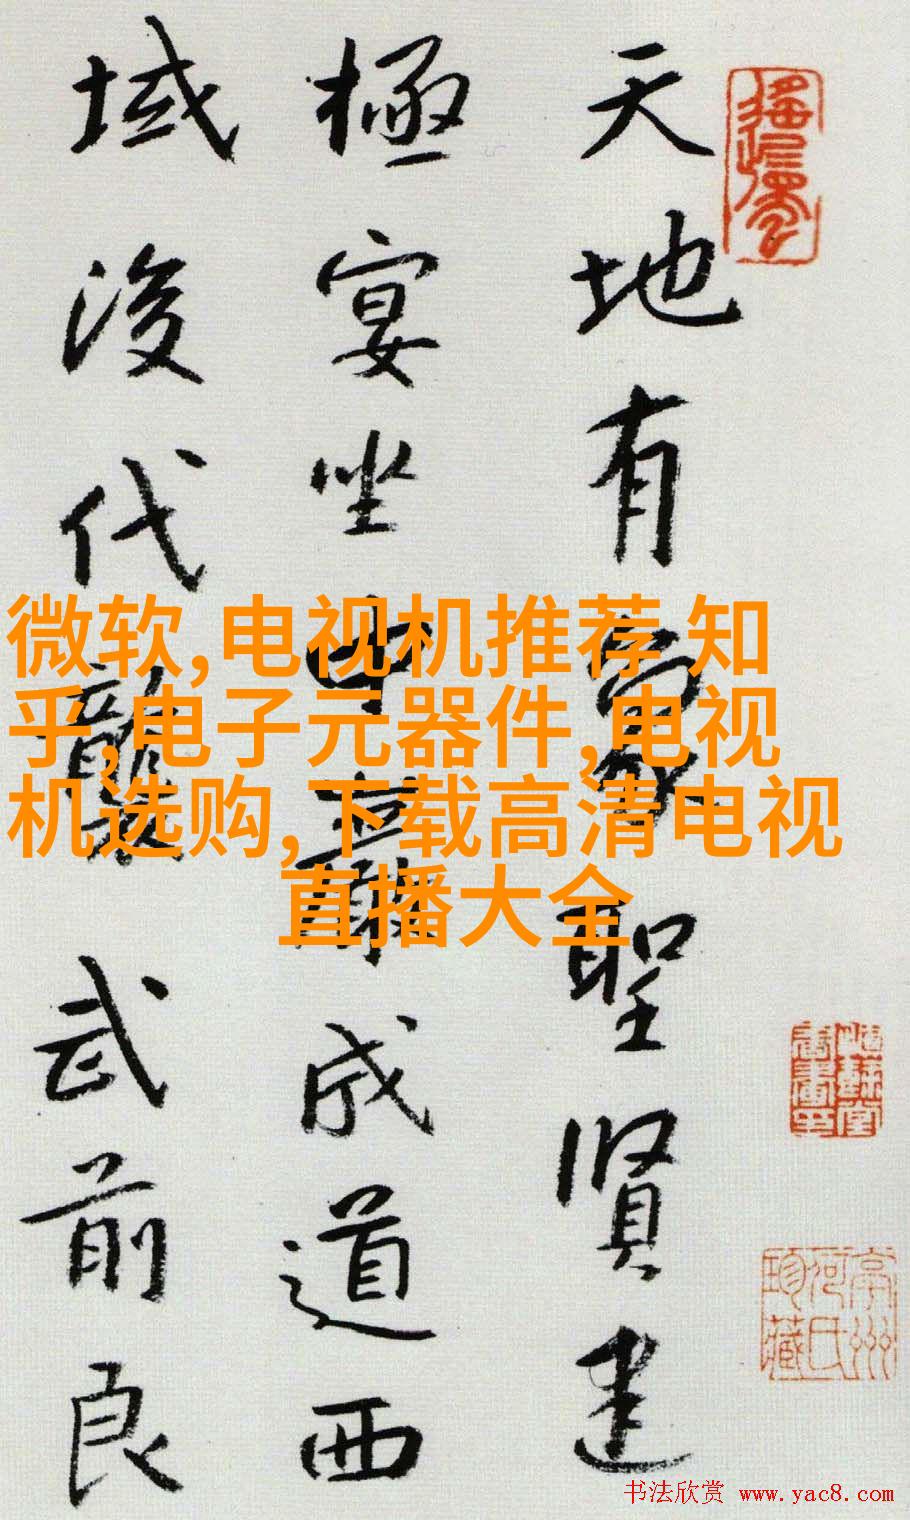 天地有象聖賢建
極宴坐中嚴成道西
域後代襲武前良
微软,电视机推荐 知
乎,电子元器件,电视
机选购,下载高清电视
直播大全
亭州
河氏
珍藏
书法欣赏 www.yac8.com